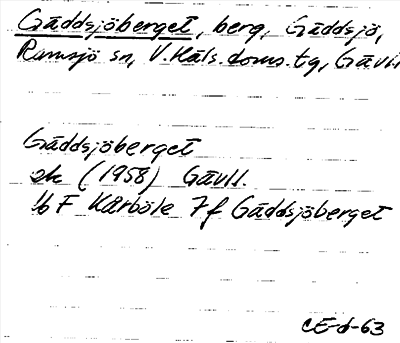 Gäddsjöberget, berg, Gäddsjö,
Ramsjö sn, V. Häls. doms. tg, Gävl.
Gäddsjöberget
ek (1958) Gävll.
16 F Kårböle 7 f Gäddsjöberget
CE-6-63